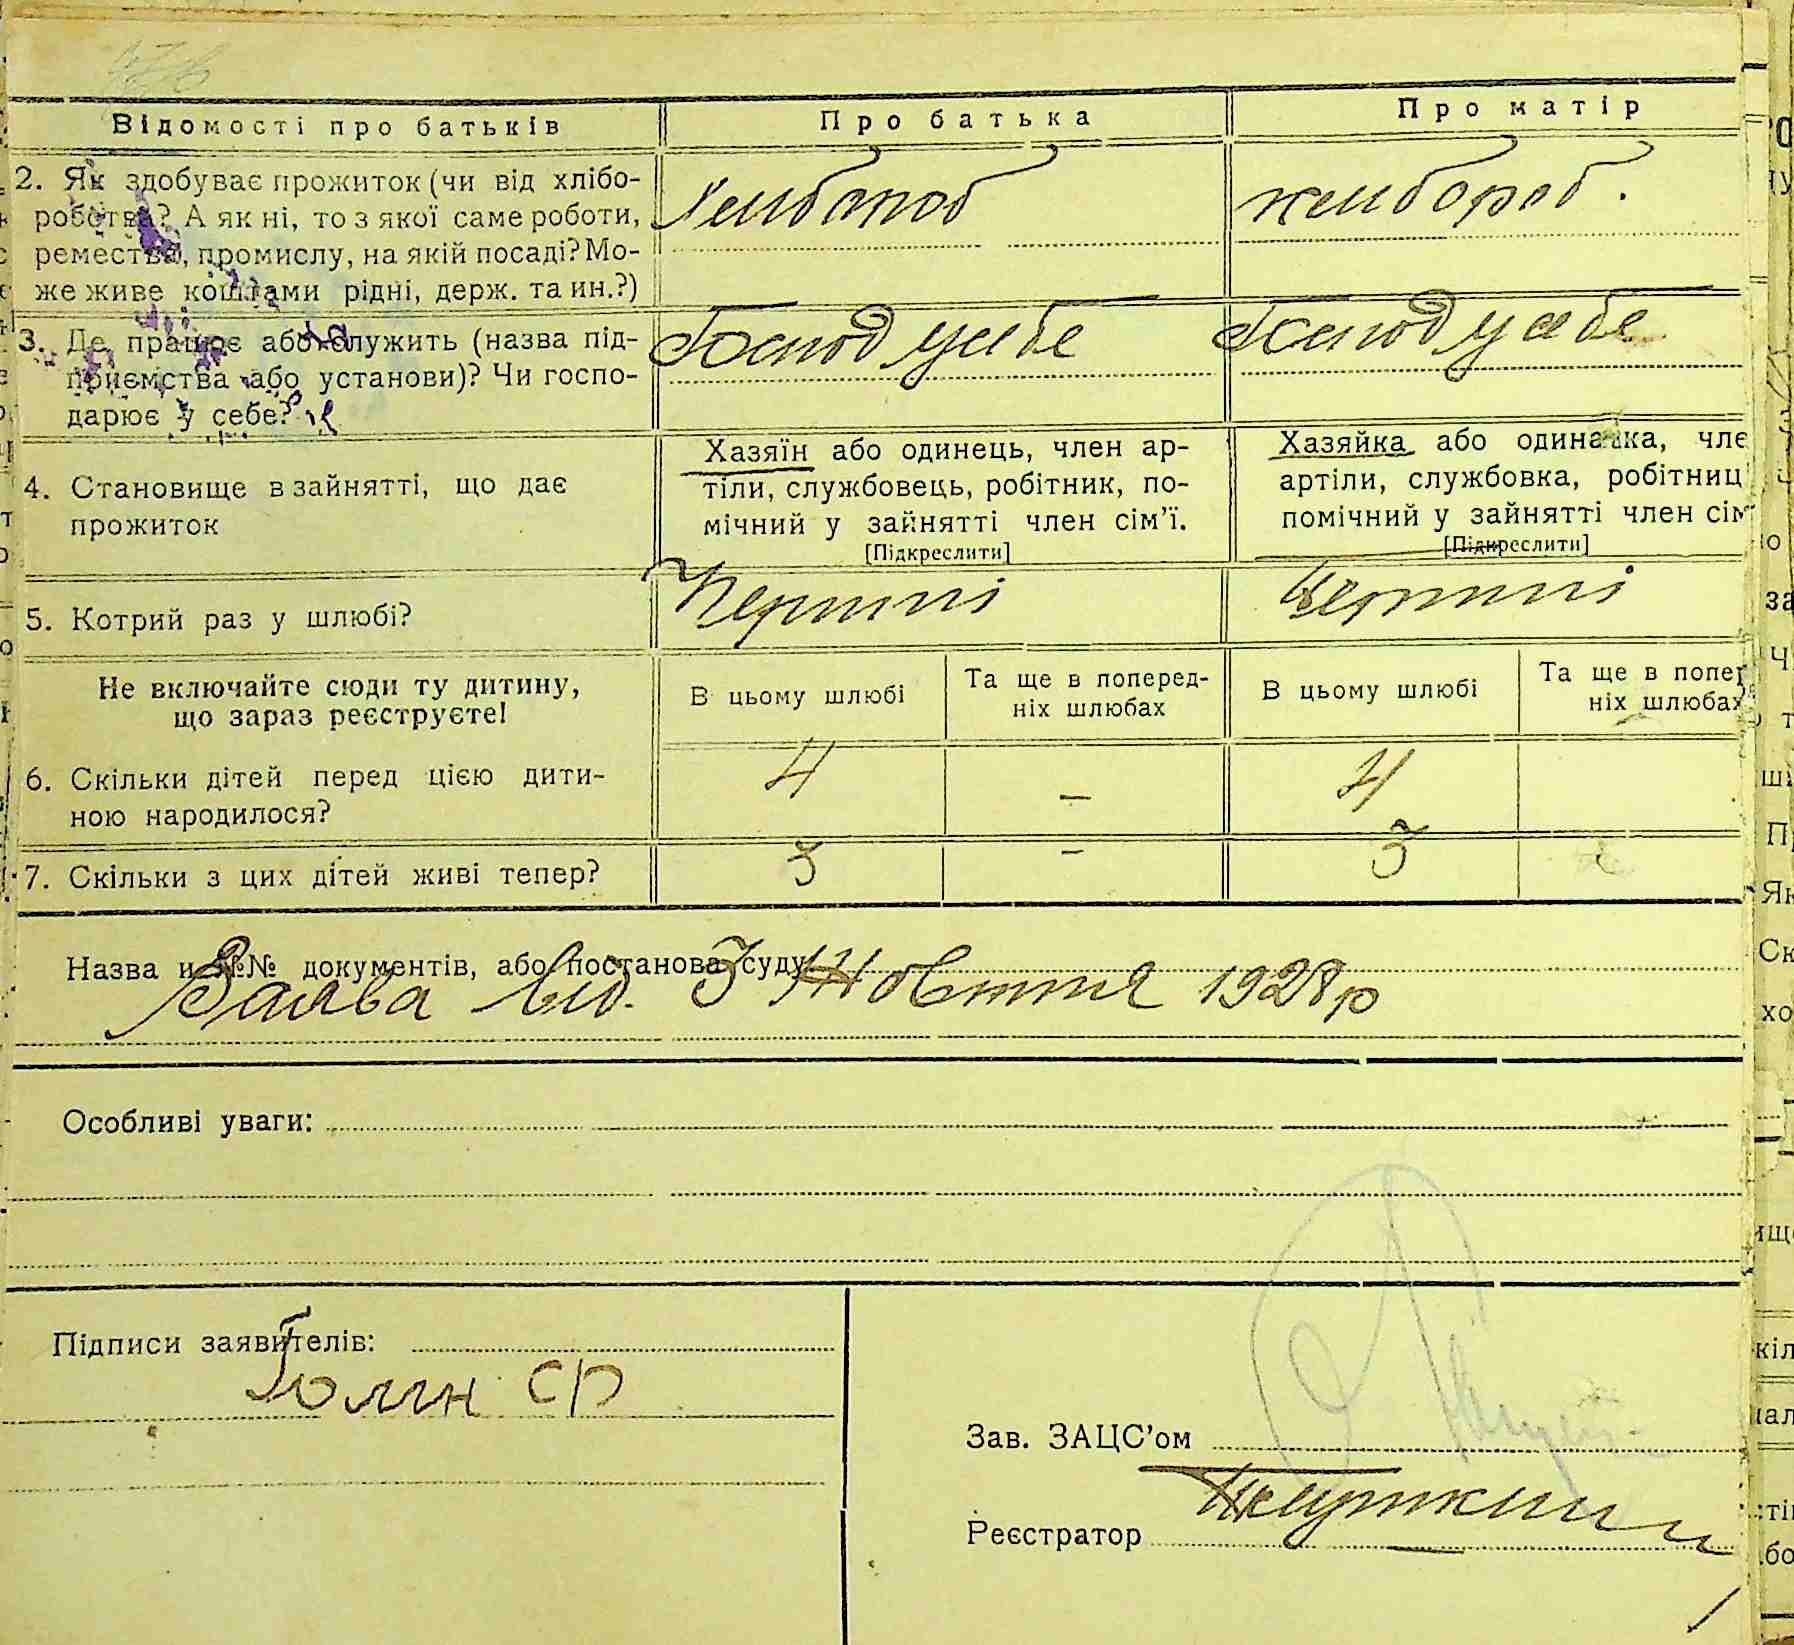 Відомості про батьків
Про батька
Про матір
2. Як здобуває прожиток (чи від хлібо-
роботва? А як ні, то з якої саме роботи,
ремества, промислу, на якій посаді? Мо-
же живе коштами рідні, держ. та ин.?)
Хлибороб
хлибороб.
3. Де працює або служить (назва під-
приємства або установи)? Чи госпо-
дарює у себе?
Господ у себе
Господ у себе
4. Становище в зайнятті, що дає
прожиток
Хазяїн або одинець, член ар-
тіли, службовець, робітник, по-
мічний у зайнятті член сім’ї.
[Підкреслити]
Хазяйка або одиначка, чле
артіли, службовка, робітниц
помічний у зайнятті член сім
[Підкреслити]
5. Котрий раз у шлюбі?
Перший
Перший
Не включайте сюди ту дитину,
що зараз реєструєте!
В цьому шлюбі
Та ще в поперед-
ніх шлюбах
В цьому шлюбі
Та ще в попер
ніх шлюбах
6. Скільки дітей перед цією дити-
ною народилося?
4
–
4
7. Скільки з цих дітей живі тепер?
3
–
3
Назва и №№ документів, або постанова суду
Заява від. 3 Жовтня 1928 р
Особливі уваги:
Підписи заявителів:
Зав. ЗАЦС’ом
Реєстратор